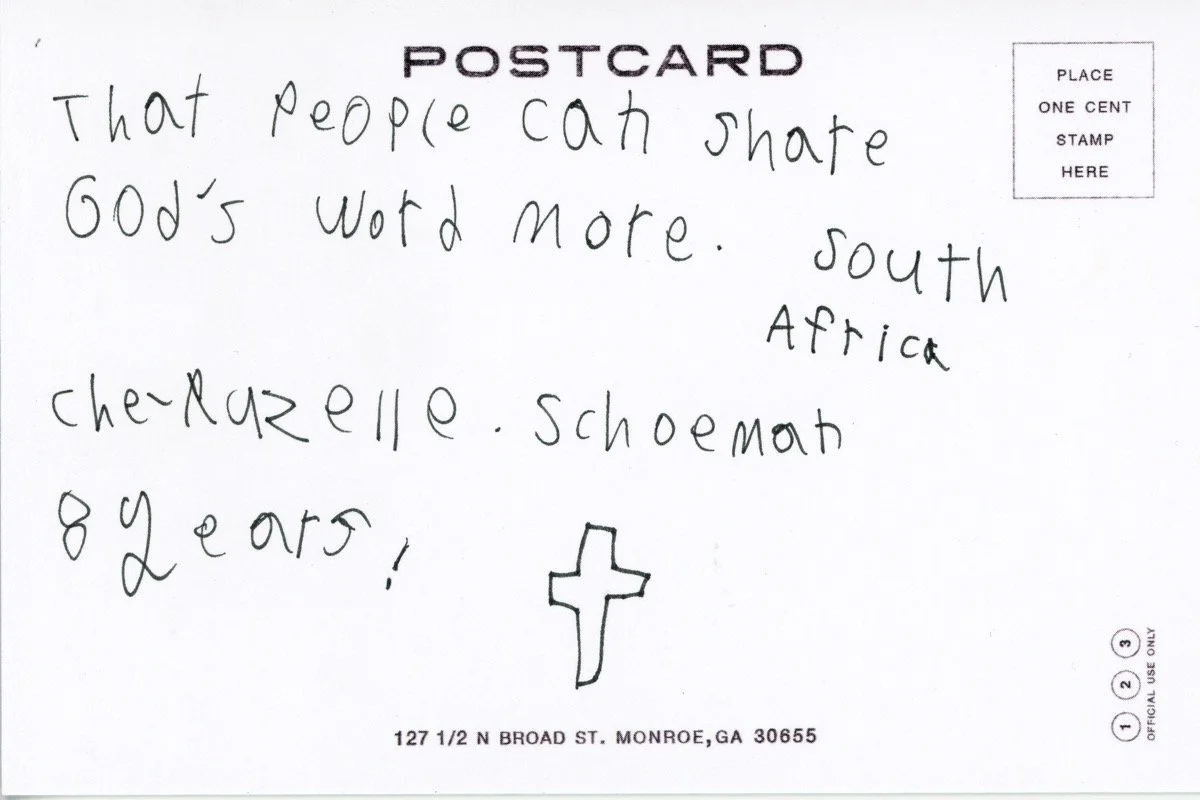 POSTCARD
PLACE
ONE CENT
STAMP
HERE
That people can share
God's word more.
South
Africa
che-Ruzelle. Schoeman
8 years!
127 1/2 N BROAD ST. MONROE, GA 30655
1 2 3
OFFICIAL USE ONLY